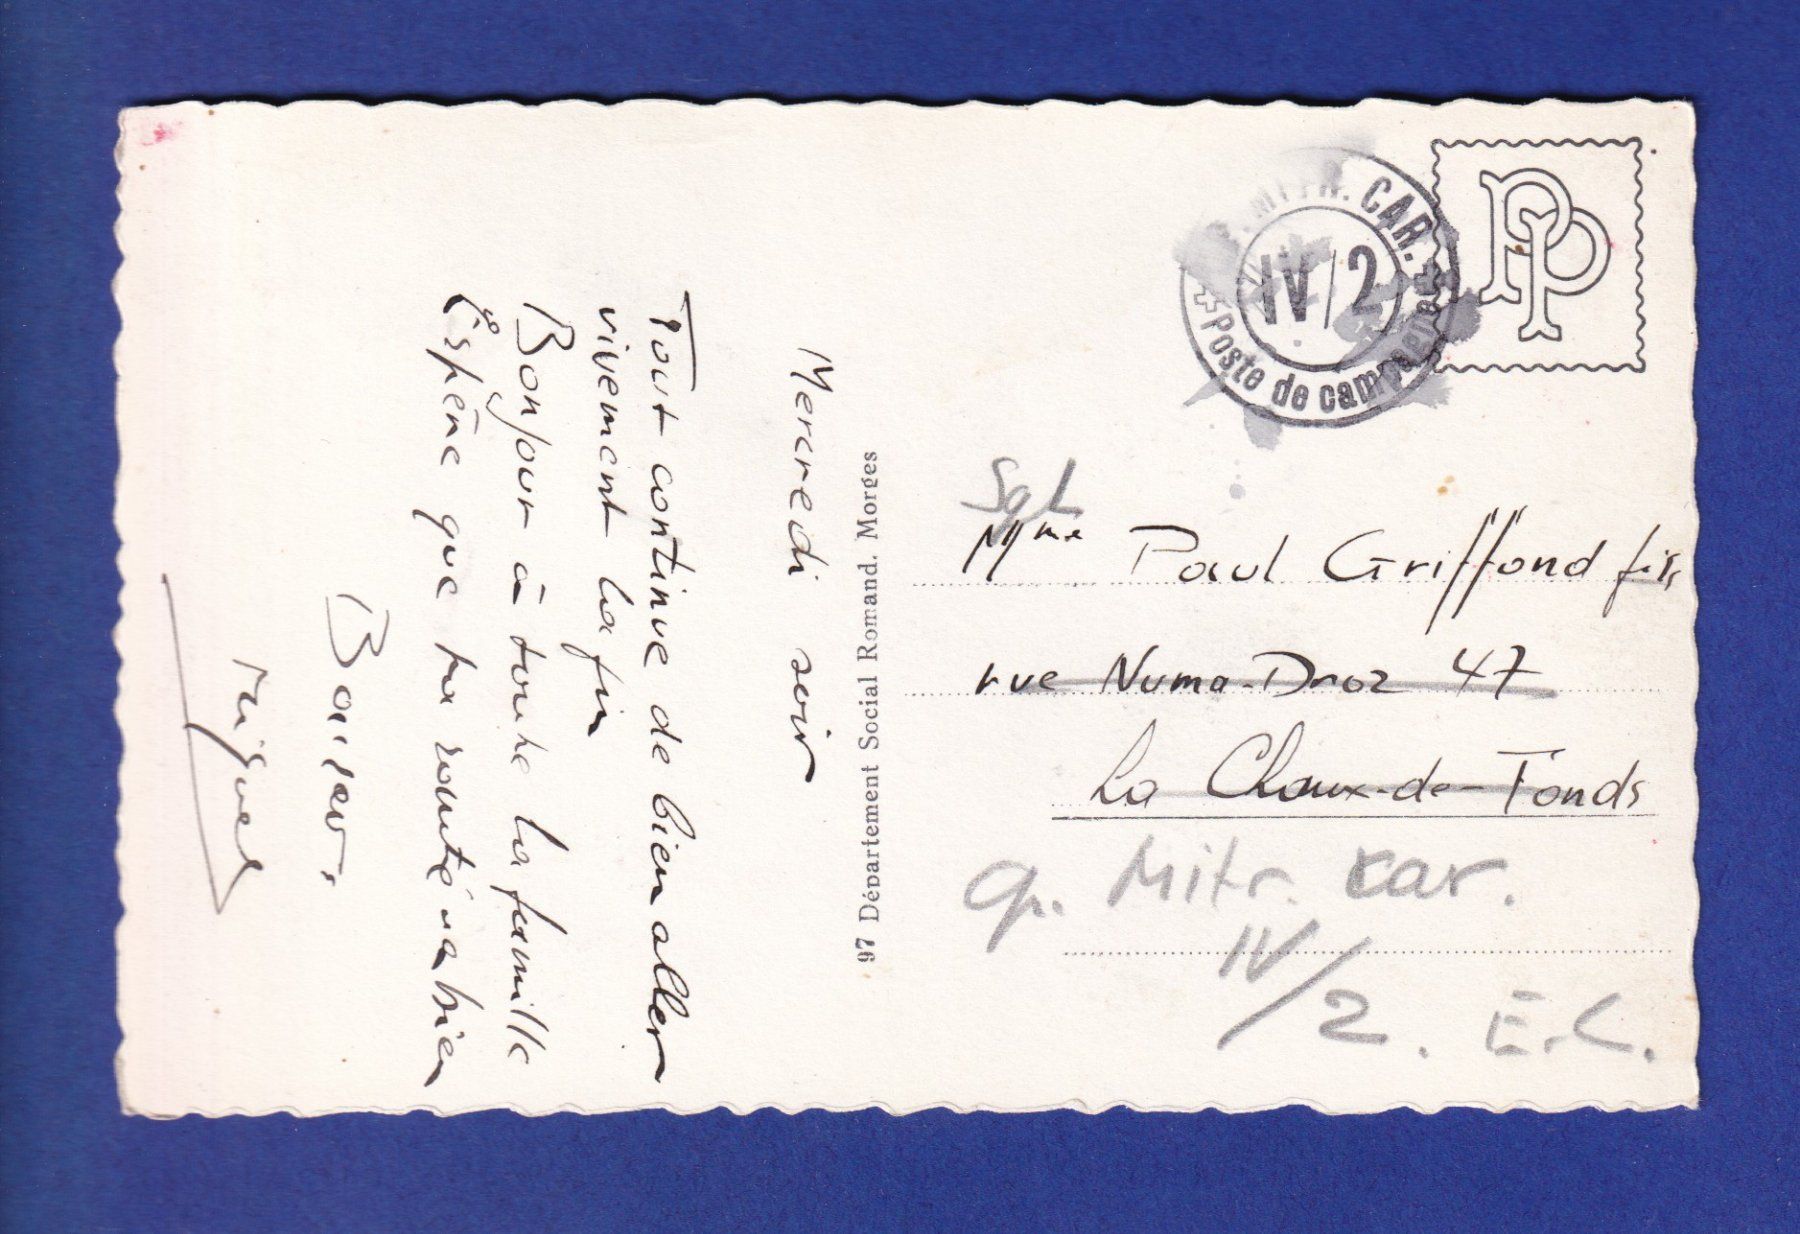 Mercredi soir
Tout continue de bien aller
vivement la fin
Bonjour à toute la famille
Espère que ta santé va bien
Baiser.
Miguel
97 Département Social Romand. Morges
MITR. CAR.
IV/2
Poste de campagne
PP
Sgt
Mme Paul Griffond fils
rue Numa-Droz 47
La Chaux-de-Fonds
Cp. Mitr. car.
IV/2. E.C.